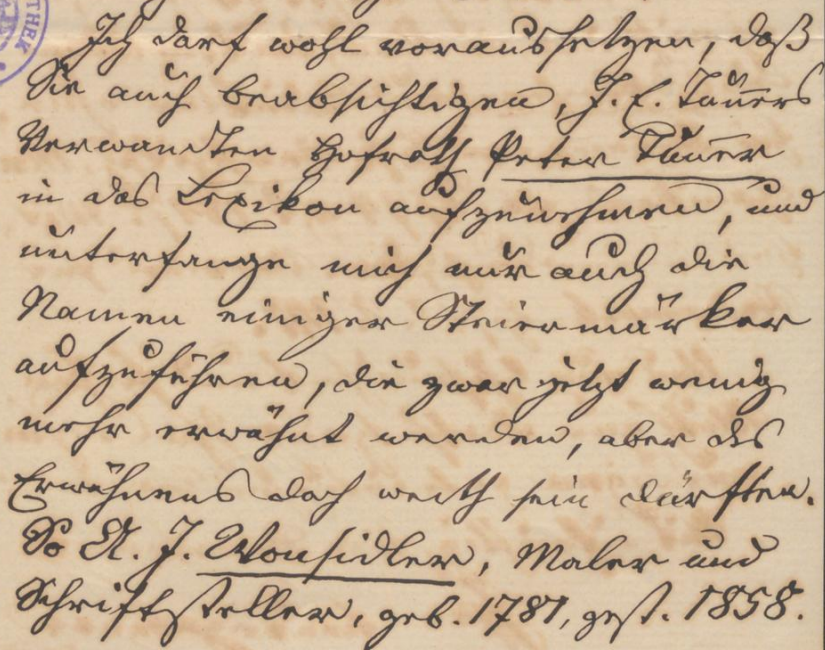 THEK
Ich darf wohl voraussetzen, daß
Sie auch beabsichtigen, J. E. Tauñers
Verwandten Hofrath Peter Tauñer
in das Lexikon aufzunehmen, und
unterfange mich nur auch die
Namen einiger Steiermärker
aufzuführen, die zwar jetzt wenig
mehr erwähnt werden, aber des
Erwähnens doch werth sein dürften.
So A. J. Wonsidler, Maler und
Schriftsteller, geb. 1787, gest. 1858.